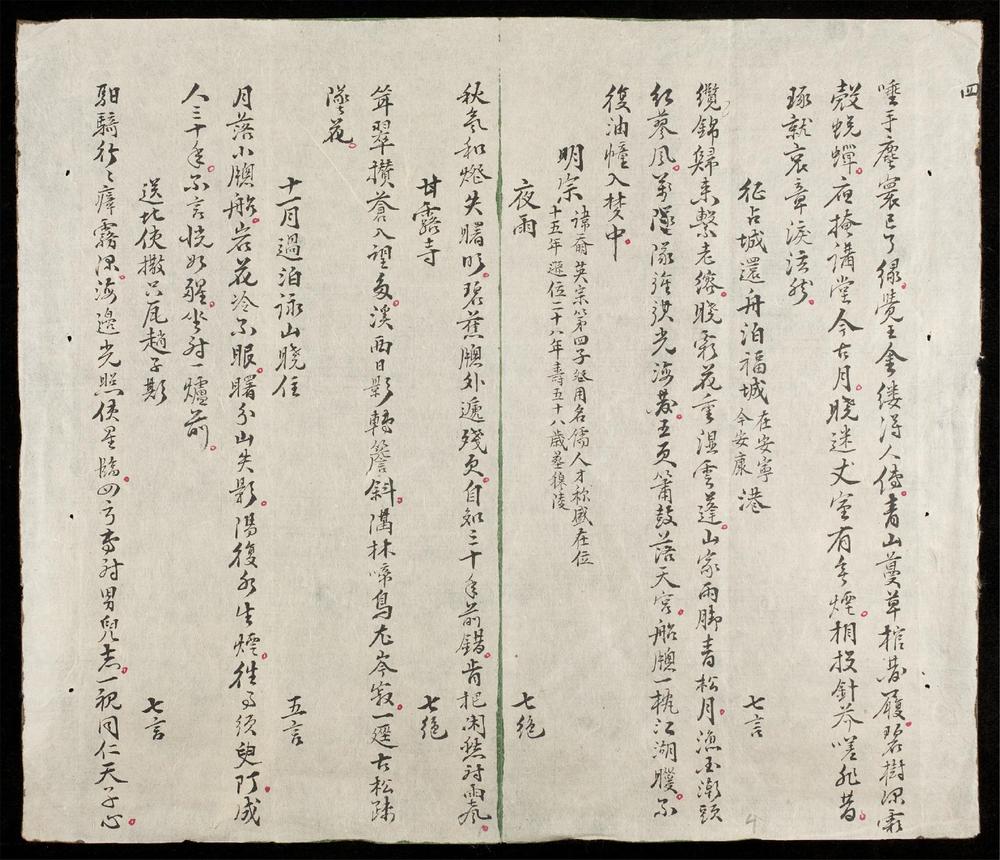 四
唾手塵寰已了緣覺王金縷得人傳青山蔓草棺藏履碧樹深霜
殼蛻蟬夜掩講堂今古月曉迷丈室有無煙相投針芥嗟非昔
琢就哀章淚泫然
征占城還舟泊福城在安寧今安康港 七言
纜錦歸來繫老榕曉霜花重濕雲蓬山家雨腳青松月漁國潮頭
紅蓼風萬隊旌旗光海藏五更簫鼓落天宮船牕一枕江湖暖不
復油幢入夢中
明宗諱奣英宗第四子登用名儒人才称盛在位
十五年遜位二十八年壽五十八歲葬穆陵
夜雨 七絕
秋氣和燈失曙明碧蕉牕外遞殘更自知三十年前錯肯把閑愁對雨聲
甘露寺 七絕
聳翠攢蒼入望多溪西日影轉簷斜隔林啼鳥尤岑寂一逕古松珠
墜花
十一月過泊詠山曉住 五言
月落小牕船岩花冷不眠曙分山失影陽復水生煙往事須臾閑成
人三十年不言恍如醒坐對一爐前
送北使撒只瓦趙子期 七言
馹騎行行瘴霧深海邊光照使星臨四方專對男兒志一視同仁天子心